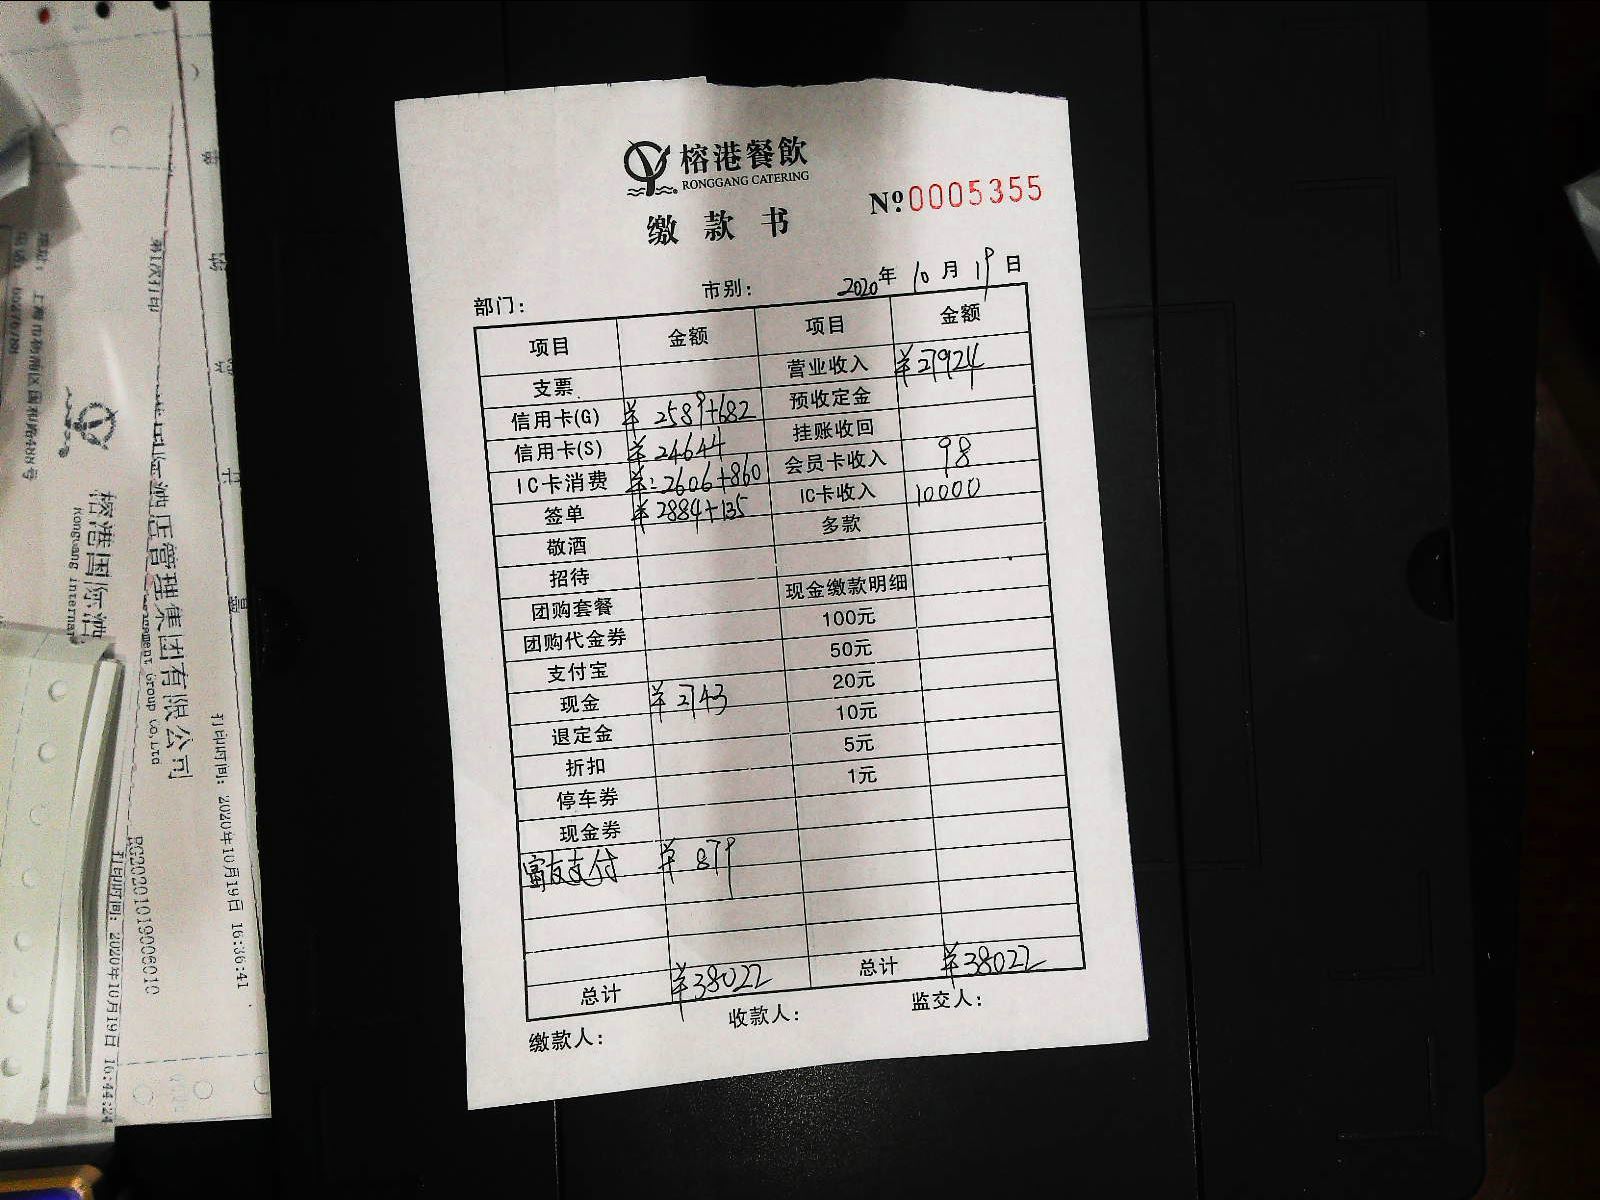 榕港餐飲
RONGGANG CATERING
缴款书
Nº:0005355
部门: 市别: 2020年 10月 19日
项目 金额 项目 金额
支票 营业收入 ¥27924
信用卡(G) ¥2589+682 预收定金
信用卡(S) ¥24644 挂账收回
IC卡消费 ¥:2606+860 会员卡收入 98
签单 ¥2884+135 IC卡收入 10000
敬酒 多款
招待
团购套餐 现金缴款明细
团购代金券 100元
支付宝 50元
现金 ¥2743 20元
退定金 10元
折扣 5元
停车券 1元
现金券
富友支付 ¥879
总计 ¥38022 总计 ¥38022
缴款人: 收款人: 监交人:
第1次打印
榕港国际酒
酒店管理集团有限公司
agement Group Co,Ltd
打印时间: 2020年10月19日 16:36:41
打印时间: 2020年10月19日 16:44:24